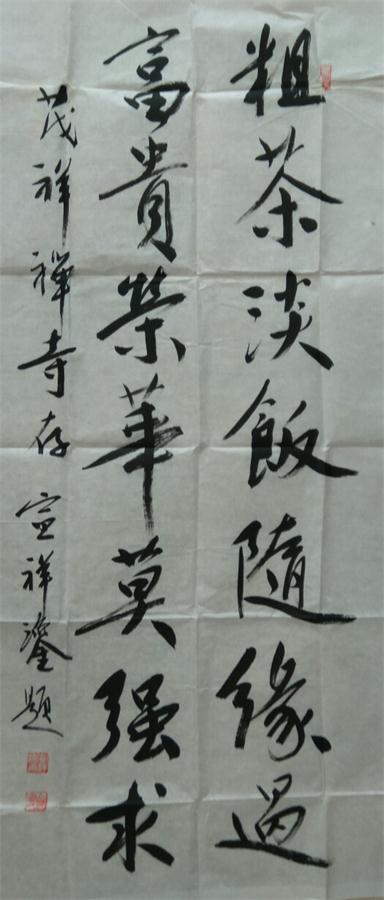 粗茶淡飯隨緣過
富貴榮華莫强求
茂祥禪寺存 宣祥鎏題